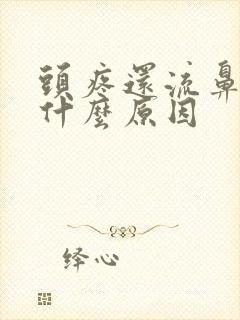 頭疼還流鼻
什麼原因
绎心